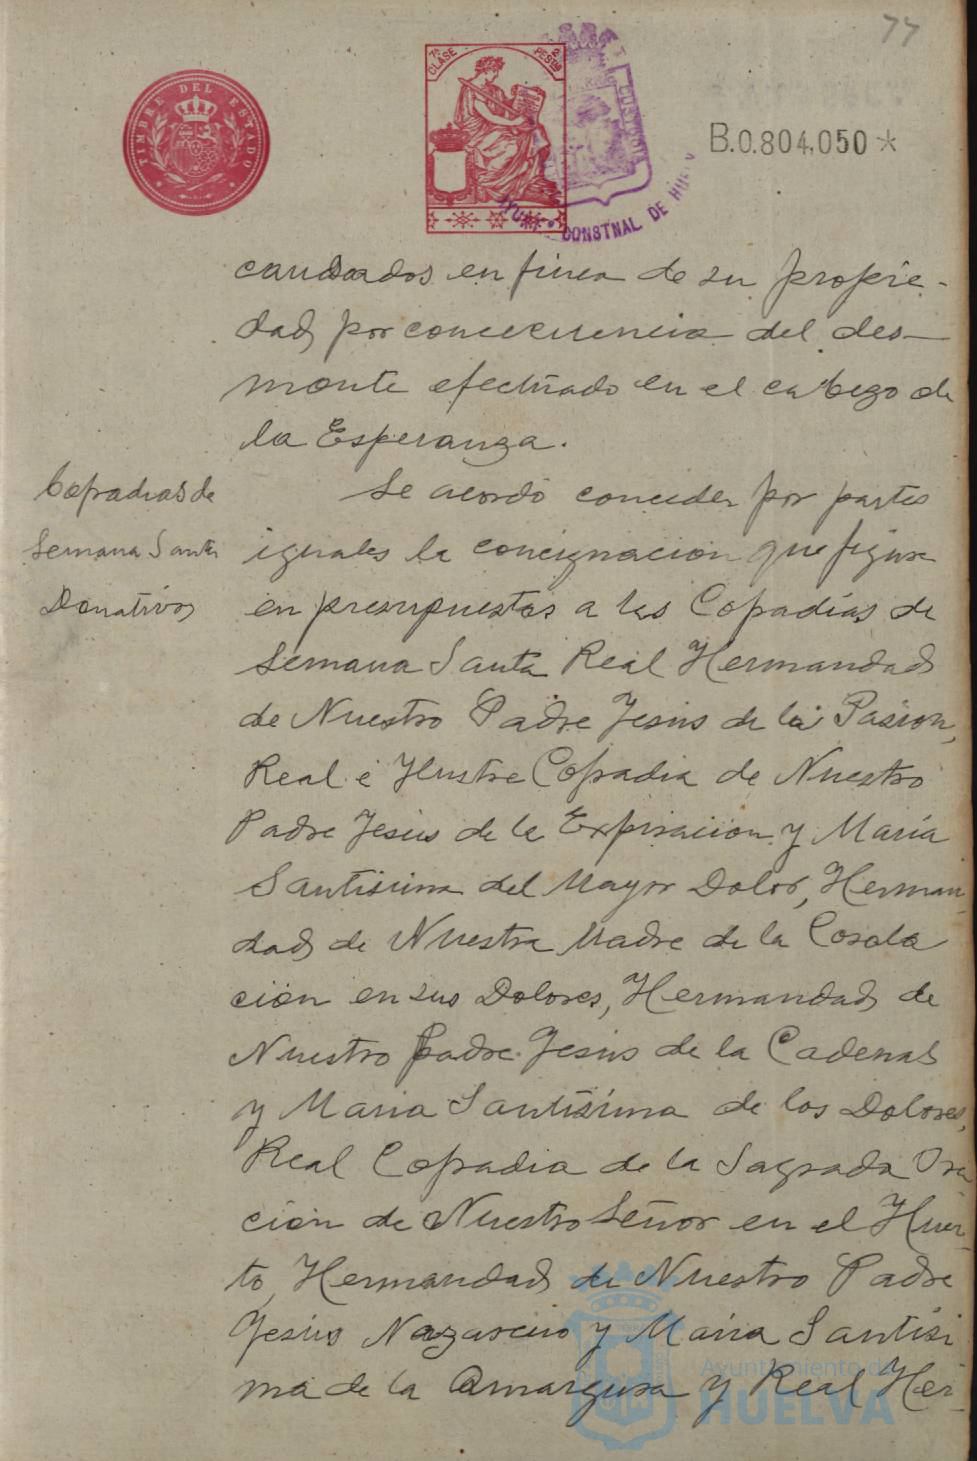 77
TIMBRE DEL ESTADO
7ª CLASE
2 PESTAS
CUSTODIA
AYUNT. CONSTNAL DE HUELV
B.0.804,050 *
causados en finca de su propie-
dad por consecuencia del des-
monte efectuado en el cabezo de
la Esperanza.
Cofradias de
Semana Santa
Donativos
Se acordó conceder por partes
iguales la consignacion que figura
en presupuestos a las Cofadías de
Semana Santa Real Hermandad
de Nuestro Padre Jesús de la Pasion,
Real e Ilustre Cofradia de Nuestro
Padre Jesús de la Expiracion y María
Santisima del Mayor Dolor, Herman-
dad de Nuestra Madre de la Cosola
ción en sus Dolores, Hermandad de
Nuestro Padre Jesús de la Cadenas
y Maria Santísima de los Dolores,
Real Cofradia de la Sagrada Ora
ción de Nuestro Señor en el Huer-
to, Hermandad de Nuestro Padre
Jesús Nazareno y Maria Santísi
ma de la Amargura y Real Her-
Ayuntamiento de
HUELVA